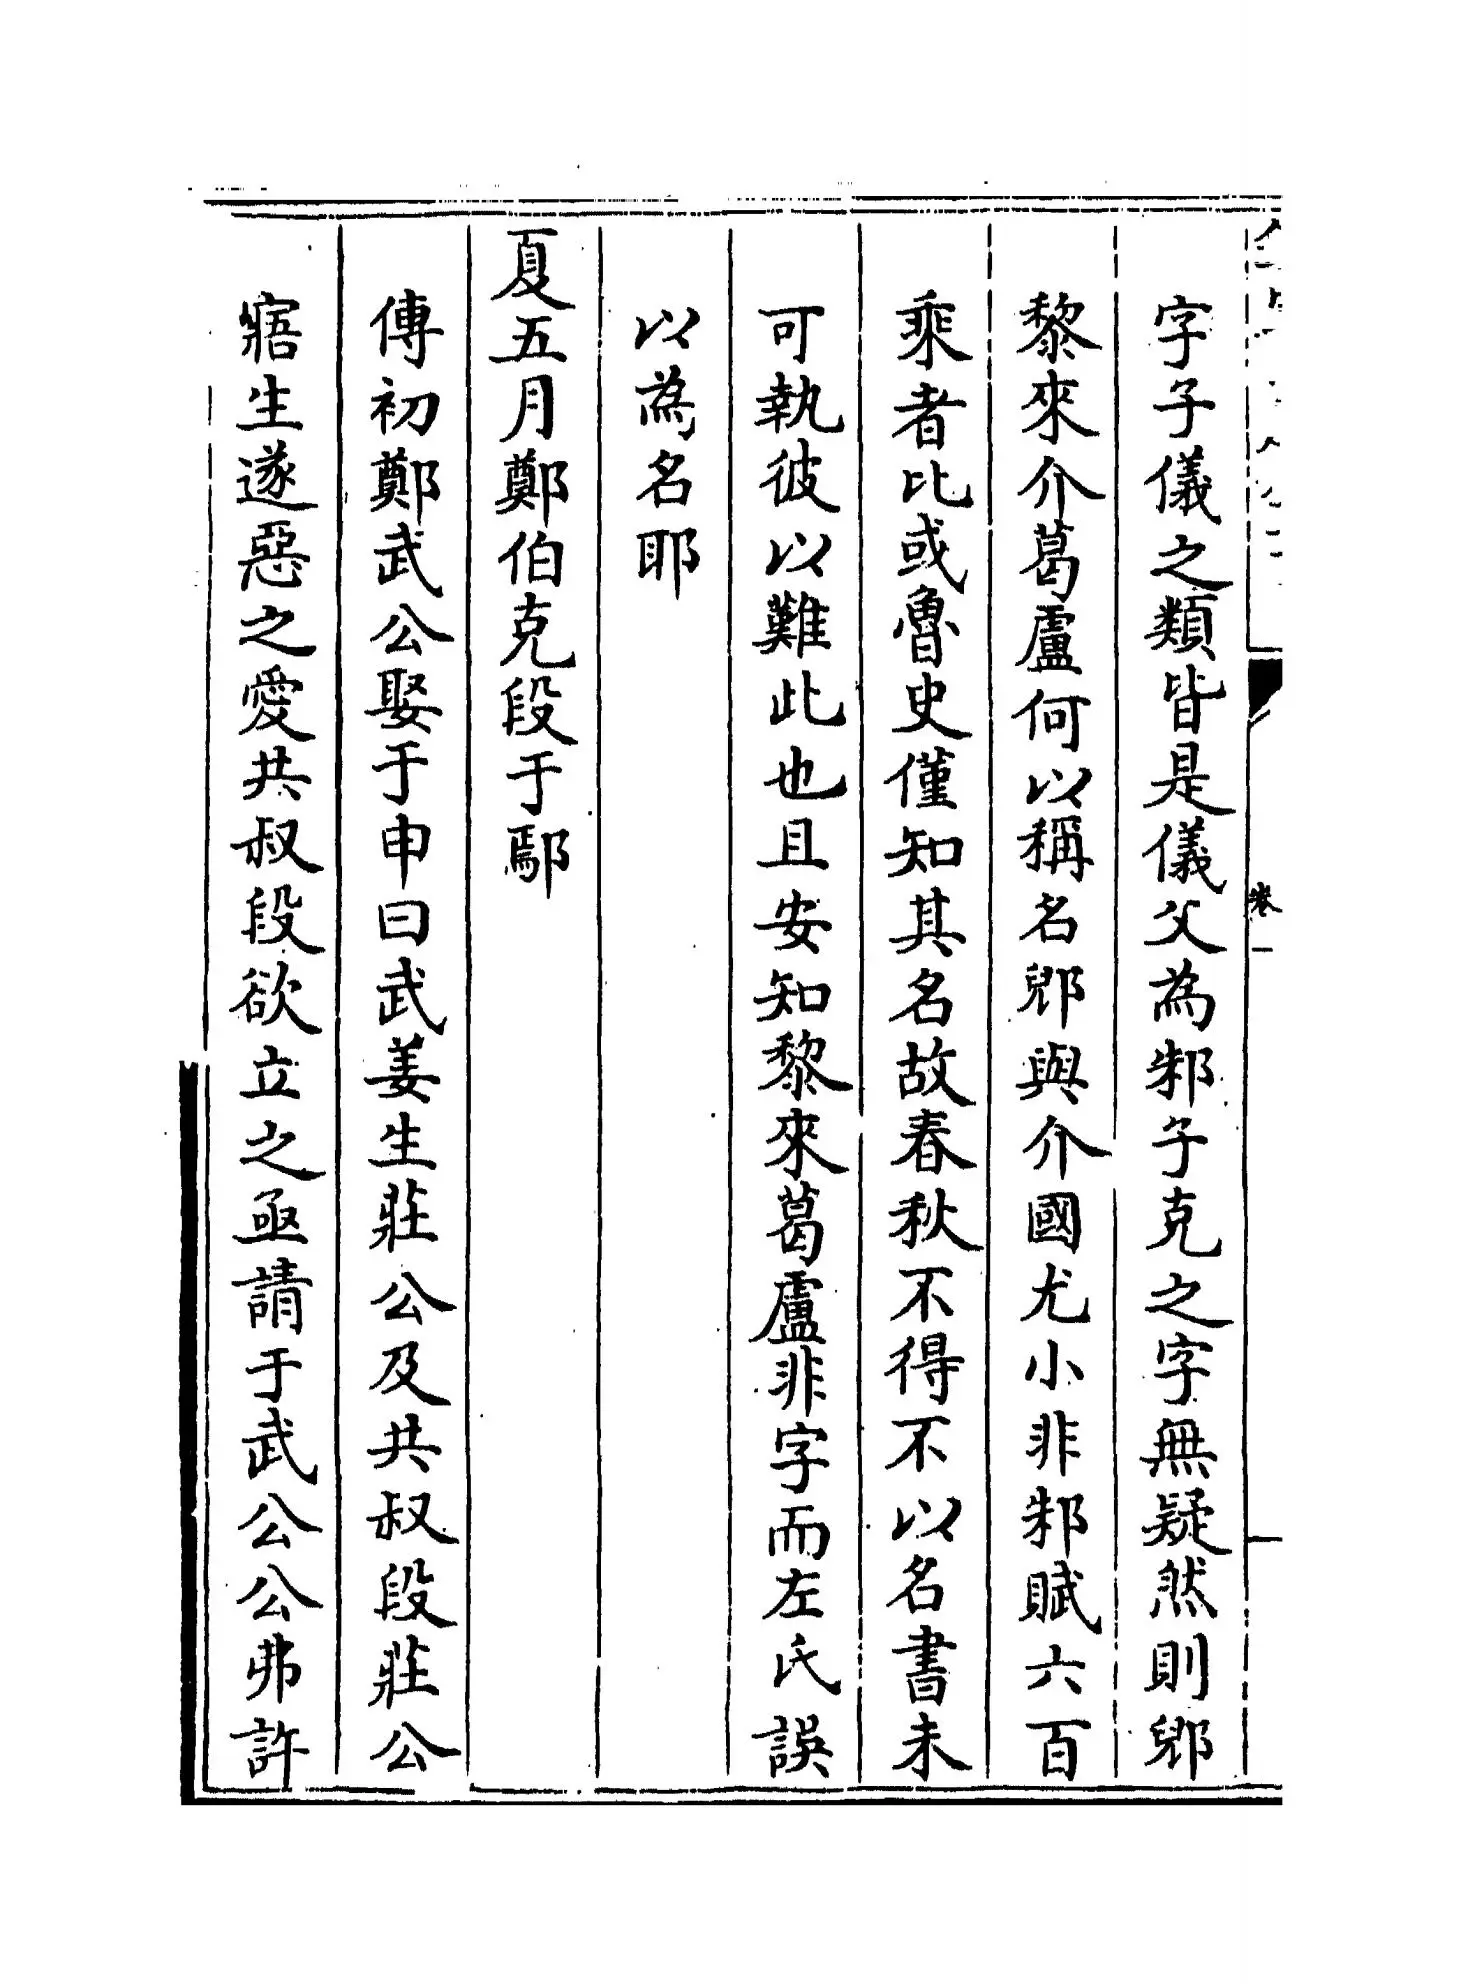 字子儀之類皆是儀父為邾子克之字無疑然則郳
黎來介葛盧何以稱名郳與介國尤小非邾賦六百
乘者比或魯史僅知其名故春秋不得不以名書未
可執彼以難此也且安知黎來葛盧非字而左氏誤
以為名耶
夏五月鄭伯克段于鄢
傳初鄭武公娶于申曰武姜生莊公及共叔段莊公
寤生遂惡之愛共叔段欲立之亟請于武公公弗許
卷一